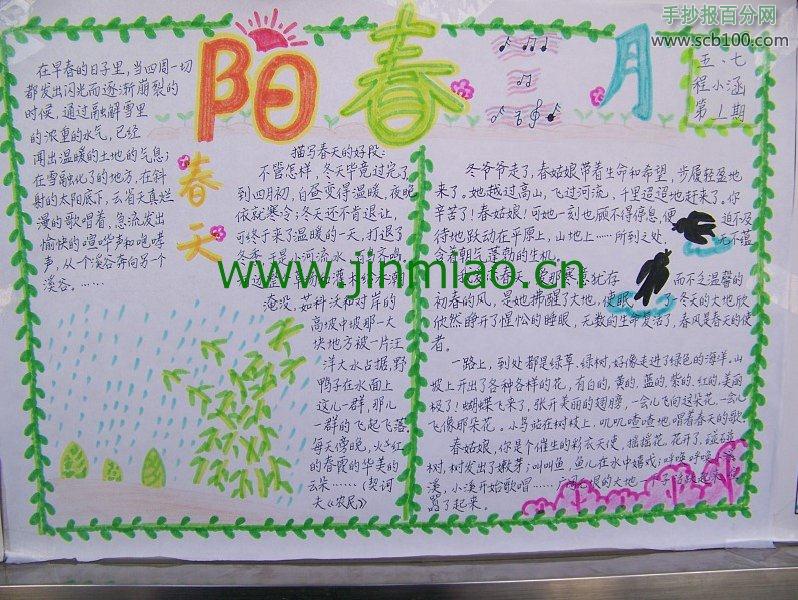 手抄报百分网
www.scb100.com
阳春三月
五、七
程小涵
第1期
在早春的日子里，当四周一切
都发出闪光而逐渐崩裂的
时候，通过融解雪里
的浓重的水气，已经
闻出温暖的土地的气息；
在雪融化了的地方，在斜
射的太阳底下，云雀天真烂
漫的歌唱着，急流发出
愉快的喧哗声和咆哮
声，从一个溪谷奔向另一个
溪谷，……
春天
描写春天的好段：
不管怎样，冬天毕竟过完了，
到四月初，白昼变得温暖，夜晚
依就寒冷；冬天还不肯退让，
可终于来了温暖的一天，打退了
冬季，于是小河流水
淹没，茹科沃和对岸的
高坡中坡那一大
块地方被一片汪
洋大水占据，野
鸭子在水面上
这儿一群，那儿
一群的飞起飞落。
每天傍晚，火红
的春霞的华美的
云朵……（契诃
夫《农民》）
冬爷爷走了，春姑娘带着生命和希望，步履轻盈地
来了。她越过高山，飞过河流，千里迢迢地赶来了。你
辛苦了！春姑娘！可她一刻也顾不得停息，便迫不及
待地跃动在平原上，山地上……所到之处，无不蕴
含着朝气蓬勃的生机。
寒意犹存而不乏温馨的
初春的风，是她拂醒了大地，使眠了冬天的大地欣
欣然睁开了惺忪的睡眼，无数的生命复活了，春风是春天的使
者。
一路上，到处都是绿草、绿树，好像走进了绿色的海洋。山
坡上开出了各种各样的花，有白的，黄的，蓝的，紫的，红的，美丽
极了！蝴蝶飞来了，张开美丽的翅膀，一会儿飞向这朵花，一会儿
飞像那朵花。小鸟站在树枝上，叽叽喳喳地唱着春天的歌。
春姑娘，你是个催生的彩衣天使，摇摇花，花开了，碰碰
树，树发出了嫩芽；叫叫鱼，鱼儿在水中嬉戏；呼唤呼唤小
溪，小溪开始歌唱……
了起来。
www.jinmiao.cn